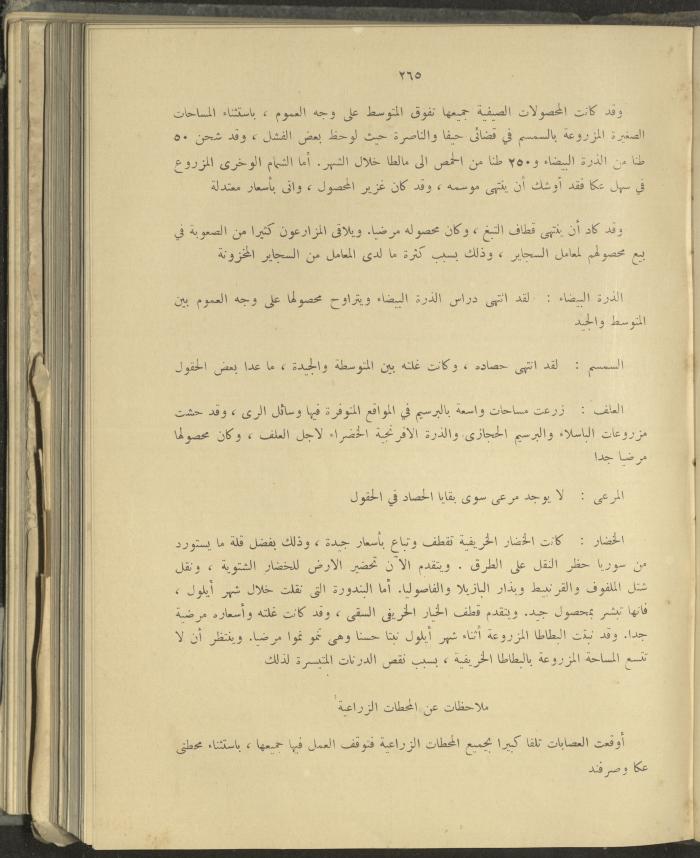 ٢٦٥
وقد كانت المحصولات الصيفية جميعها تفوق المتوسط على وجه العموم ، باستثناء المساحات
الصغيرة المزروعة بالسمسم في قضائى حيفا والناصرة حيث لوحظ بعض الفشل ، وقد شحن ٥٠
طنا من الذرة البيضاء و٢٥٠ طنا من الحمص الى مالطا خلال الشهر. أما الشمام الوخرى المزروع
في سهل عكا فقد أوشك أن ينتهى موسمه ، وقد كان غزير المحصول ، واتى بأسعار معتدلة
وقد كاد أن ينتهى قطاف التبغ ، وكان محصوله مرضيا. ويلاقى المزارعون كثيرا من الصعوبة في
بيع محصولهم لمعامل السجاير ، وذلك بسبب كثرة ما لدى المعامل من السجاير المخزونة
الذرة البيضاء : لقد انتهى دراس الذرة البيضاء ويتراوح محصولها على وجه العموم بين
المتوسط والجيد
السمسم : لقد انتهى حصاده ، وكانت غلته بين المتوسطة والجيدة ، ما عدا بعض الحقول
العلف : زرعت مساحات واسعة بالبرسيم في المواقع المتوفرة فيها وسائل الرى ، وقد حشت
مزروعات الباسلاء والبرسيم الحجازى والذرة الافرنجية الخضراء لاجل العلف ، وكان محصولها
مرضيا جدا
المرعى : لا يوجد مرعى سوى بقايا الحصاد في الحقول
الخضار : كانت الخضار الخريفية تقطف وتباع بأسعار جيدة ، وذلك بفضل قلة ما يستورد
من سوريا حظر النقل على الطرق . ويتقدم الآن تحضير الارض للخضار الشتوية ، ونقل
شتل الملفوف والقرنبيط وبذار البازيلا والفاصوليا. أما البندورة التى نقلت خلال شهر أيلول ،
فانها تبشر بمحصول جيد. ويتقدم قطف الخيار الخريفى السقى ، وقد كانت غلته وأسعاره مرضية
جدا. وقد نبتت البطاطا المزروعة أثناء شهر أيلول نبتا حسنا وهى تنمو نموا مرضيا. وينتظر أن لا
تتسع المساحة المزروعة بالبطاطا الخريفية ، بسبب نقص الدرنات المتيسرة لذلك
ملاحظات عن المحطات الزراعية
أوقعت العصابات تلفا كبيرا بجميع المحطات الزراعية فتوقف العمل فيها جميعها ، باستثناء محطتى
عكا وصرفند